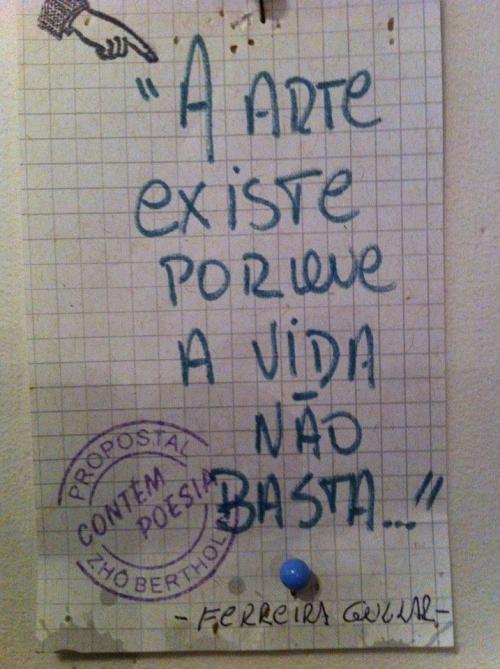 "A ARTE
EXISTE
PORQUE
A VIDA
NÃO
BASTA..."
PROPOSTAL
CONTÉM
POESIA
ZHÔ BERTHOL
- FERREIRA GULLAR -